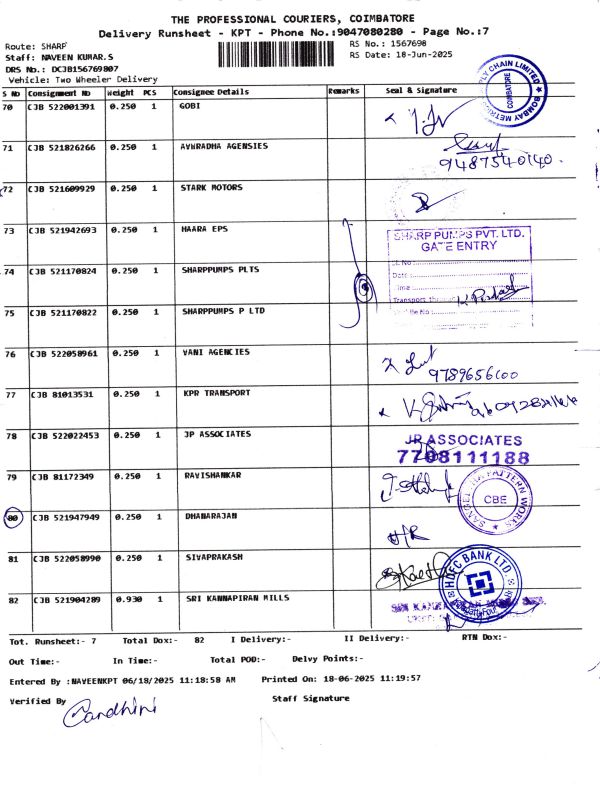 THE PROFESSIONAL COURIERS, COIMBATORE
Delivery Runsheet - KPT - Phone No.:9047080280 - Page No.:7
Route: SHARP
RS No.: 1567698
Staff: NAVEEN KUMAR.S
RS Date: 18-Jun-2025
DRS No.: DCJB156769807
Vehicle: Two Wheeler Delivery
S No Consignment No Weight PCS Consignee Details Remarks Seal & Signature
70 CJB 522001391 0.250 1 GOBI
COIMBATORE
71 CJB 521826266 0.250 1 AVURADHA AGENSIES
9487540140.
72 CJB 521609929 0.250 1 STARK MOTORS
73 CJB 521942693 0.250 1 HAARA EPS
SHARP PUMPS PVT. LTD.
GATE ENTRY
74 CJB 521170824 0.250 1 SHARPPUMPS PLTS
Date
Time
Transport
75 CJB 521170822 0.250 1 SHARPPUMPS P LTD
76 CJB 522058961 0.250 1 VANI AGENCIES
9789656600
77 CJB 81013531 0.250 1 KPR TRANSPORT
78 CJB 522022453 0.250 1 JP ASSOCIATES
JR ASSOCIATES
7708111188
79 CJB 81172349 0.250 1 RAVISHANKAR
CBE
80 CJB 521947949 0.250 1 DHANARAJAN
81 CJB 522058990 0.250 1 SIVAPRAKASH
HDFC BANK LTD.
82 CJB 521904289 0.930 1 SRI KANNAPIRAN MILLS
Tot. Runsheet:- 7 Total Dox:- 82 I Delivery:- II Delivery:- RTN Dox:-
Out Time:- In Time:- Total POD:- Delvy Points:-
Entered By :NAVEENKPT 06/18/2025 11:18:58 AM Printed On: 18-06-2025 11:19:57
Verified By
Staff Signature
Gandhini